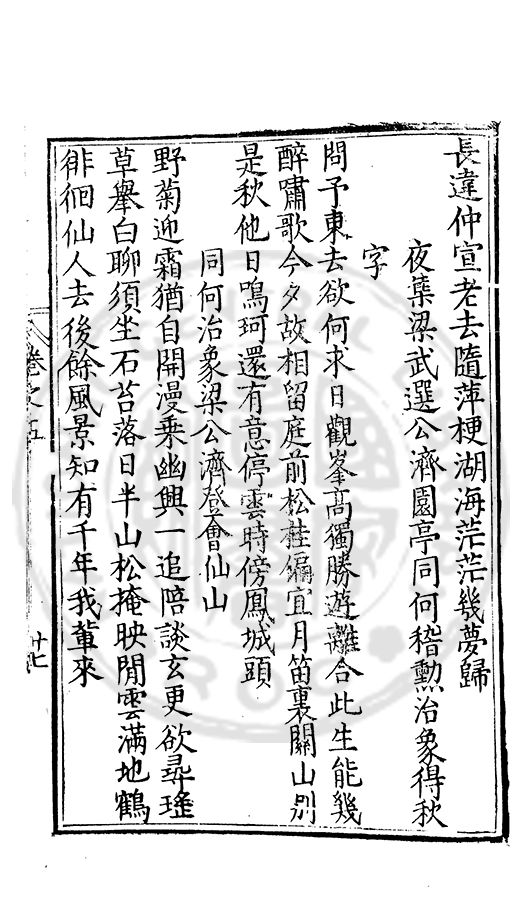 長違仲宣老去隨萍梗湖海茫茫幾夢歸
夜集梁武選公濟園亭同何稽勲治象得秋
字
問予東去欲何求日觀峯高獨勝遊離合此生能幾
醉嘯歌今夕故相留庭前松桂偏宜月笛裏關山別
是秋他日鳴珂還有意停雲時傍鳳城頭
同何治象梁公濟登會仙山
野菊迎霜猶自開漫乘幽興一追陪談玄更欲尋瑤
草舉白聊須坐石苔落日半山松掩映閒雲滿地鶴
徘徊仙人去後餘風景知有千年我輩來
廿七